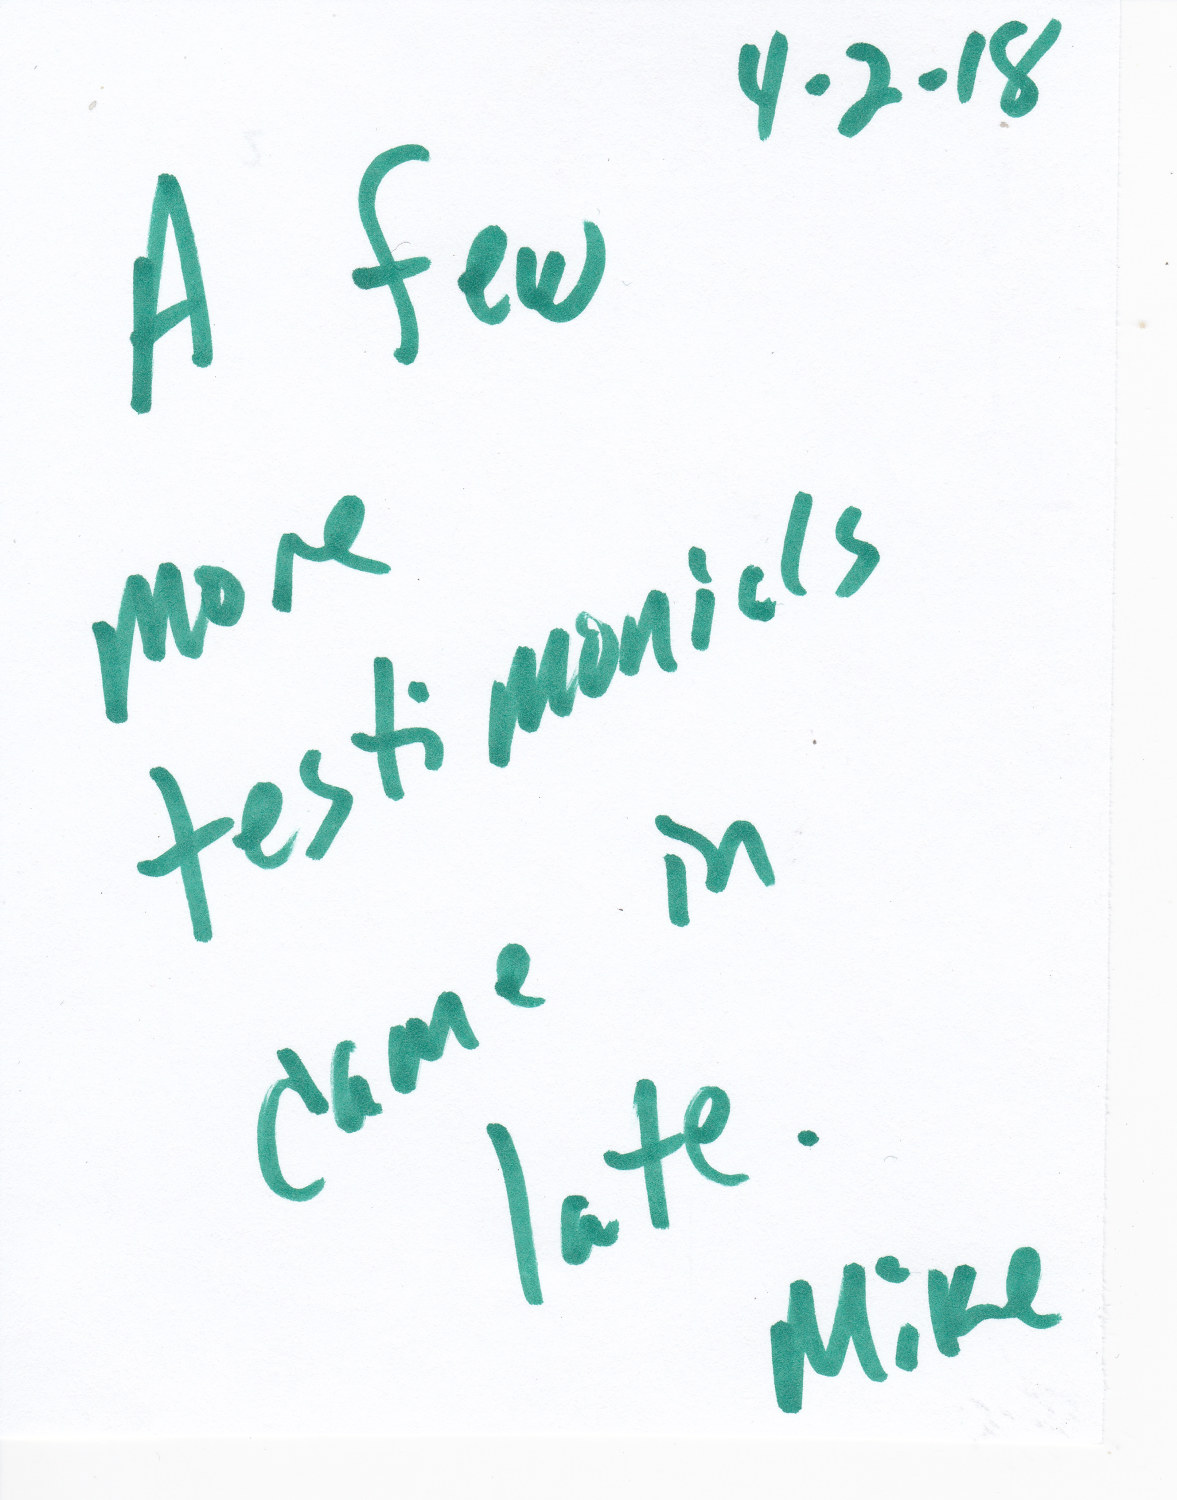 4.2.18
A few
more
testimonials
came in
late.
Mike